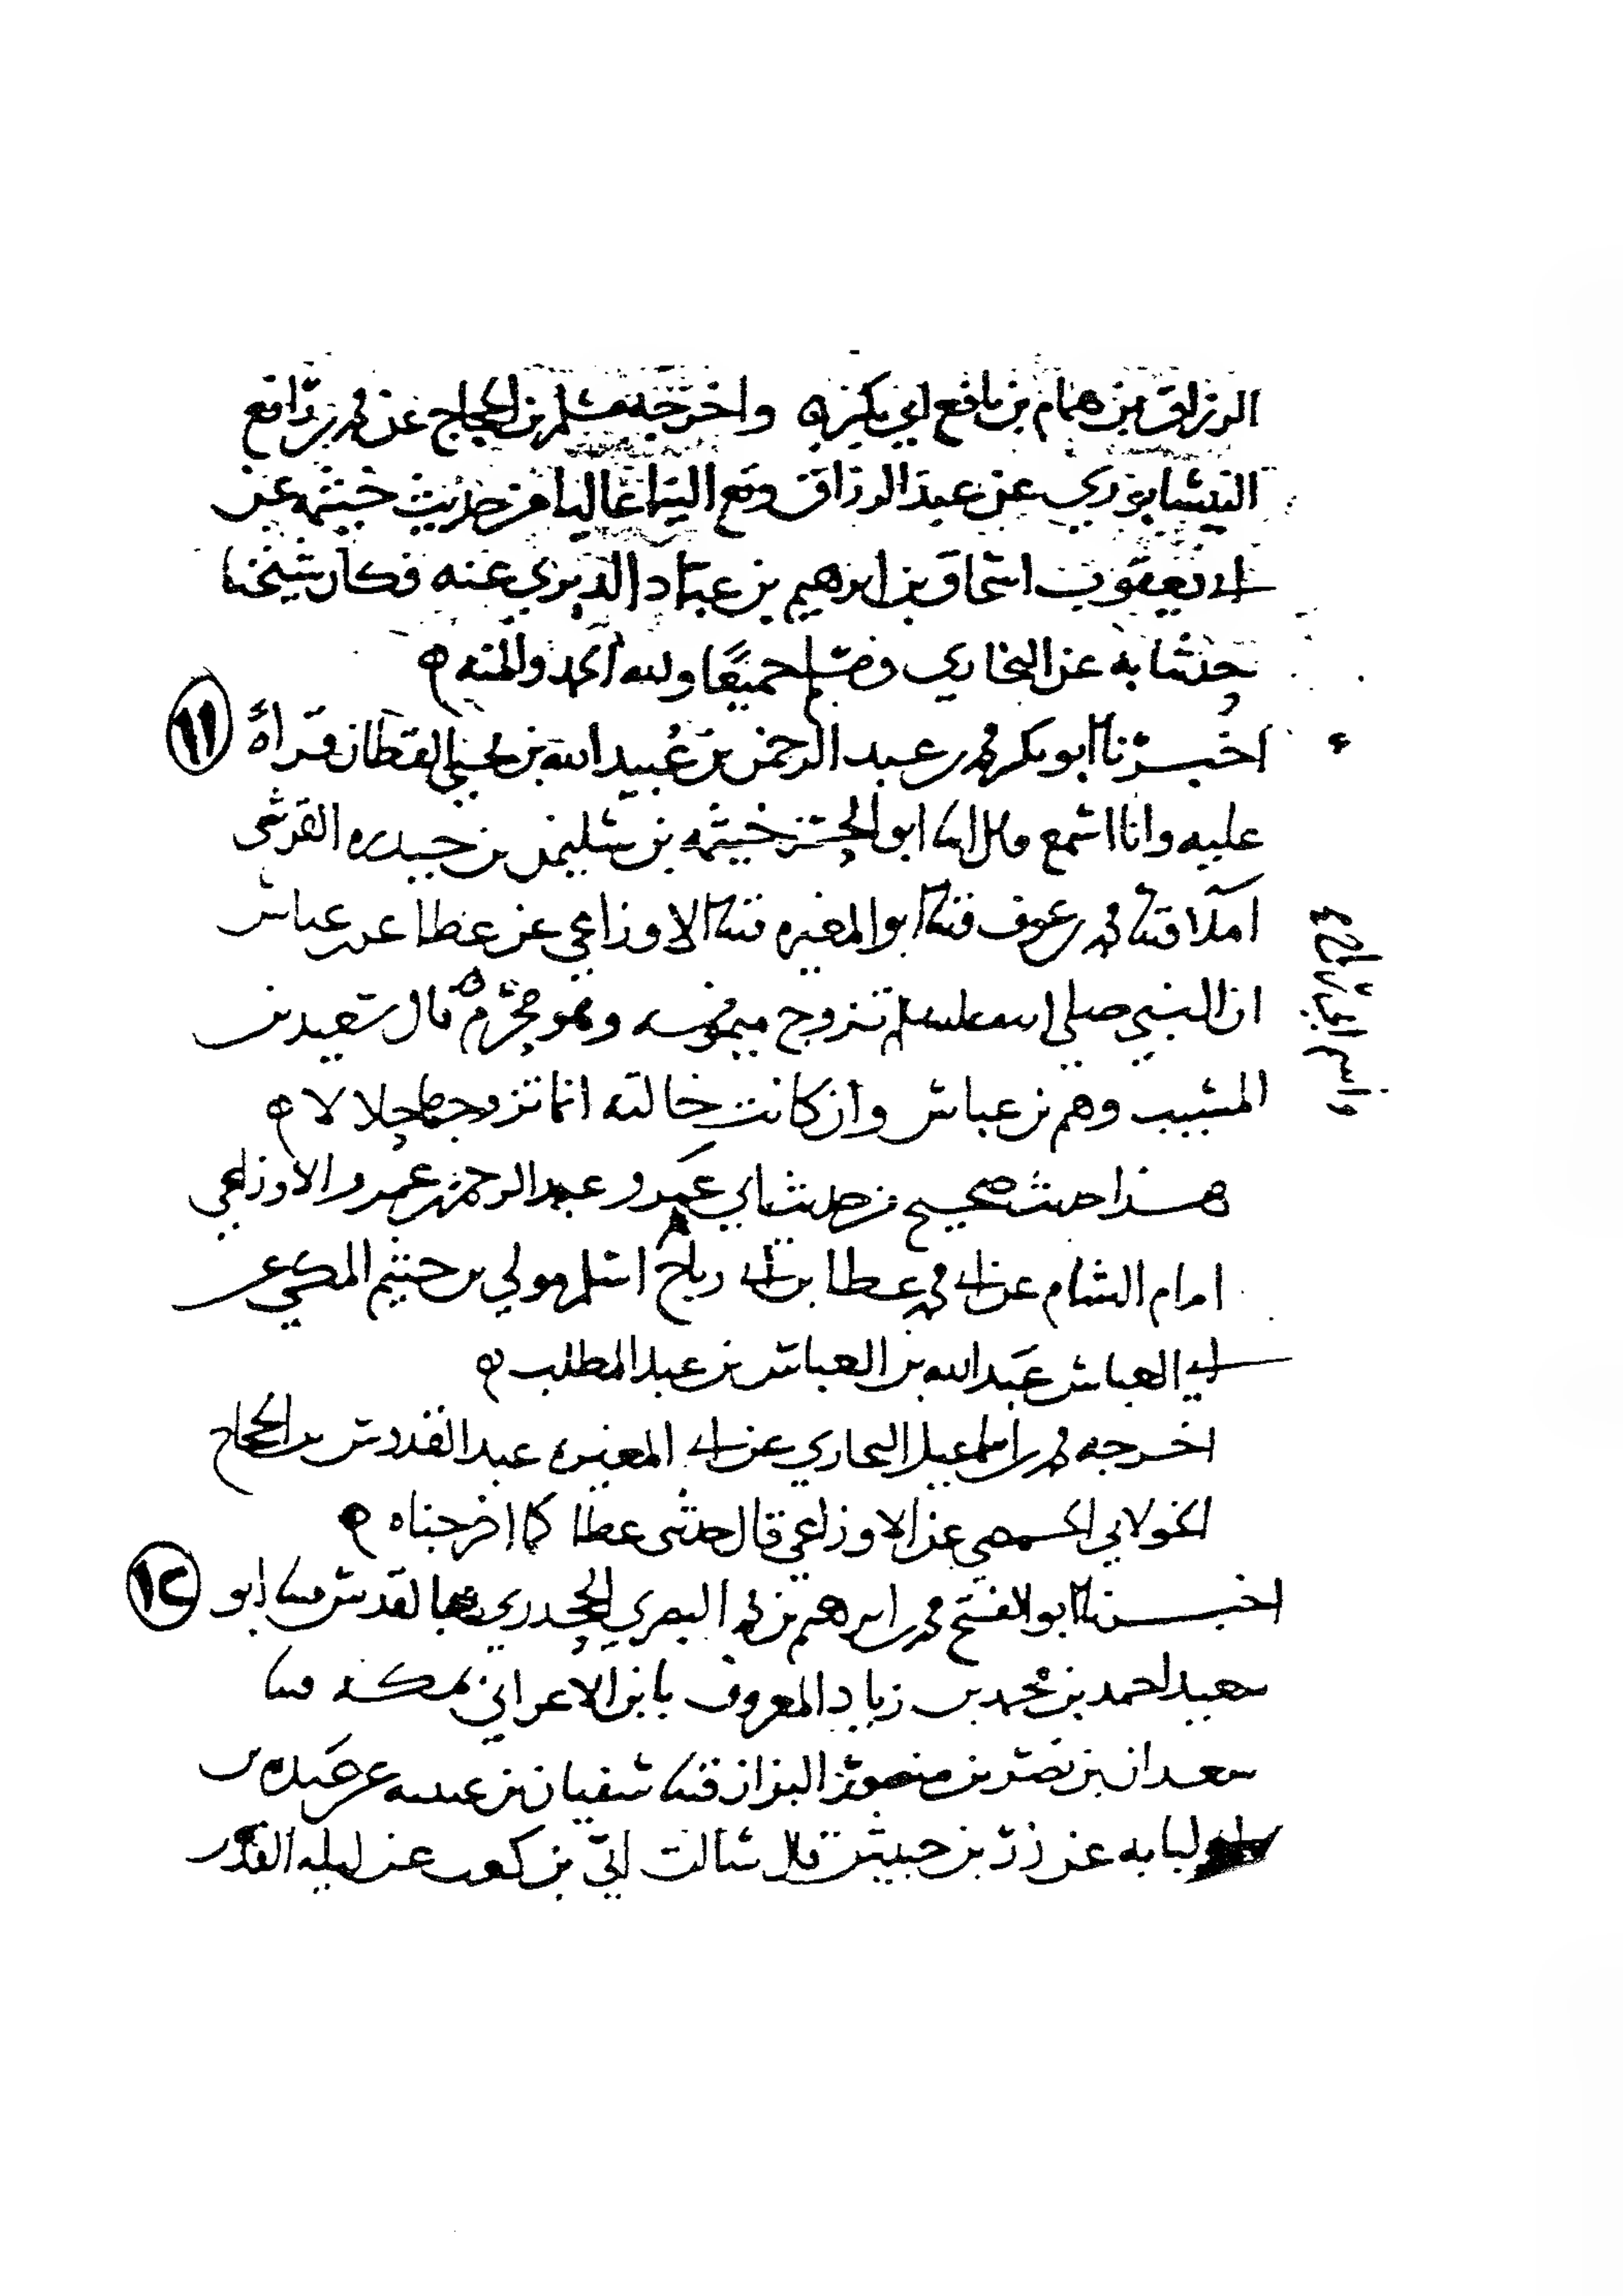 الرزاق بن همام بن نافع ابي بكر ه واخرجه مسلم بن الحجاج عن محمد بن رافع
النيسابوري عن عبد الرزاق وقع الينا عاليا من حديث خيثمه عن
ابي يعقوب اسحاق بن ابرهيم بن عباد الدبري عنه فكان شيخنا
حدثنا به عن البخاري ومسلم جميعا ولله الحمد والمنه ه
اخبرنا ابو بكر محمد بن عبد الرحمن بن عبيد الله بن يحيى القطان قراه ١١
عليه وانا اسمع قال ابنا ابو الحسن خيثمه بن سليمن بن حيدره القرشي
املا قثنا محمد بن عوف قثنا ابو المغيره قثنا الاوزاعي عن عطا عن بن عباس
ان النبي صلى الله عليه وسلم تزوج ميمونه وهو محرم ه قال سعيد بن
المسيب وهم بن عباس وان كانت خالته انما تزوجها حلالا ه
هذا حديث صحيح من حديث ابي عمرو عبد الرحمن بن عمرو الاوزاعي
امام الشام عن ابي محمد عطا بن ابي رباح اسلم مولى بن خثيم المكي عن
ابي العباس عبد الله بن العباس بن عبد المطلب ه
اخرجه محمد بن اسماعيل البخاري عن ابي المغيره عبد القدوس بن الحجاج
الخولاني الحمصي عن الاوزاعي قال حدثني عطا كما اخرجناه ه
اخبرنا ابو الفتح محمد بن ابرهيم بن محمد البصري الجحدري بالقدس قثنا ابو ١٢
سعيد احمد بن محمد بن زياد المعروف بابن الاعرابي بمكه قثنا
سعدان بن نصر بن منصور البزاز قثنا سفيان بن عيينه عن عبده بن
ابي لبابه عن زر بن حبيش قال سالت ابي بن كعب عن ليله القدر